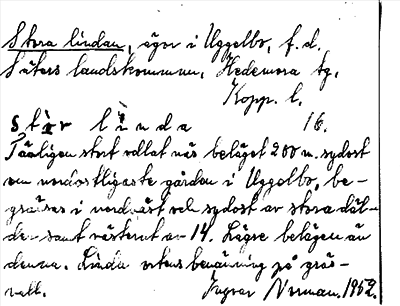 Stora lindan, ägor i Uggelbo, f. d.
Säters landskommun, Hedemora tg,
Kopp. l.
stòr linda 16.
Tämligen stort odlat näs beläget 200 m. sydost
om nordostligaste gården i Uggelbo, be-
gränsas i nordväst och sydost av stora däl-
der samt västerut av 14. Lägre belägen än
denna. Linda ortens benämning på gräs-
vall. Ingvar Norman, 1952.